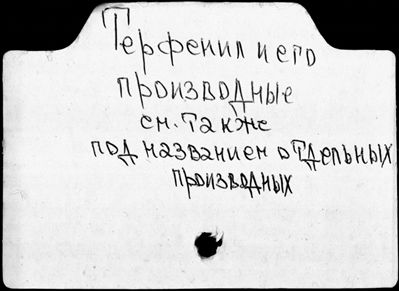 Терфенил и его
производные
см. также
под названием отдельных
производных